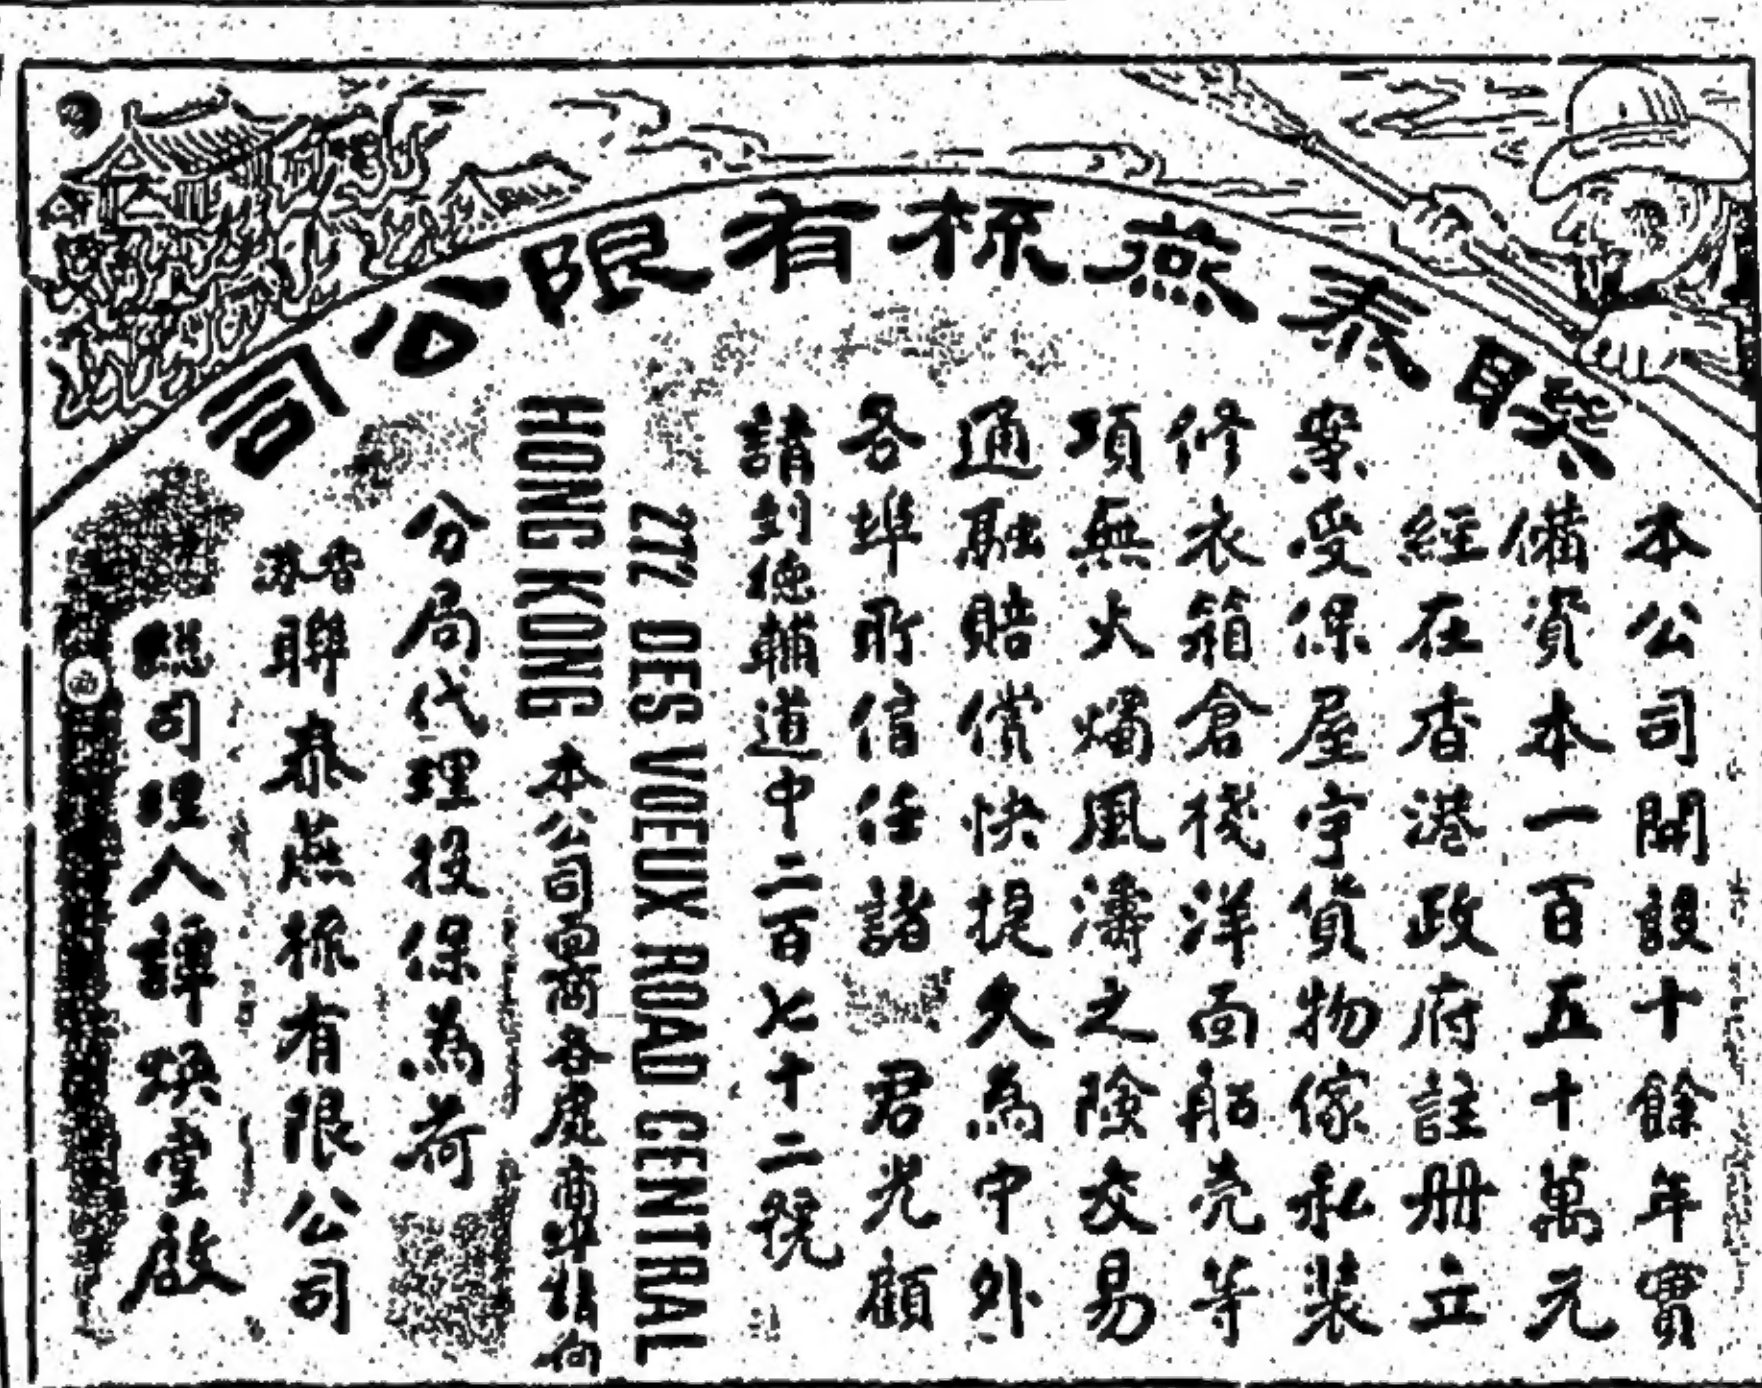 聯泰燕梳有限公司
本公司開設十餘年實
備資本一百五十萬元
經在香港政府註册立
案受保屋宇貨物傢私裝
修衣箱倉棧洋面船壳等
項無火燭風濤之險交易
通融賠償快捷久為中外
各埠所信任諸 君光顧
請到德輔道中二百七十二號
272 DES VOEUX ROAD CENTRAL
HONG KONG 本公司 各處 埠請向
分局代理投保為荷
香港聯泰燕梳有限公司
總司理人譚煥堂啟